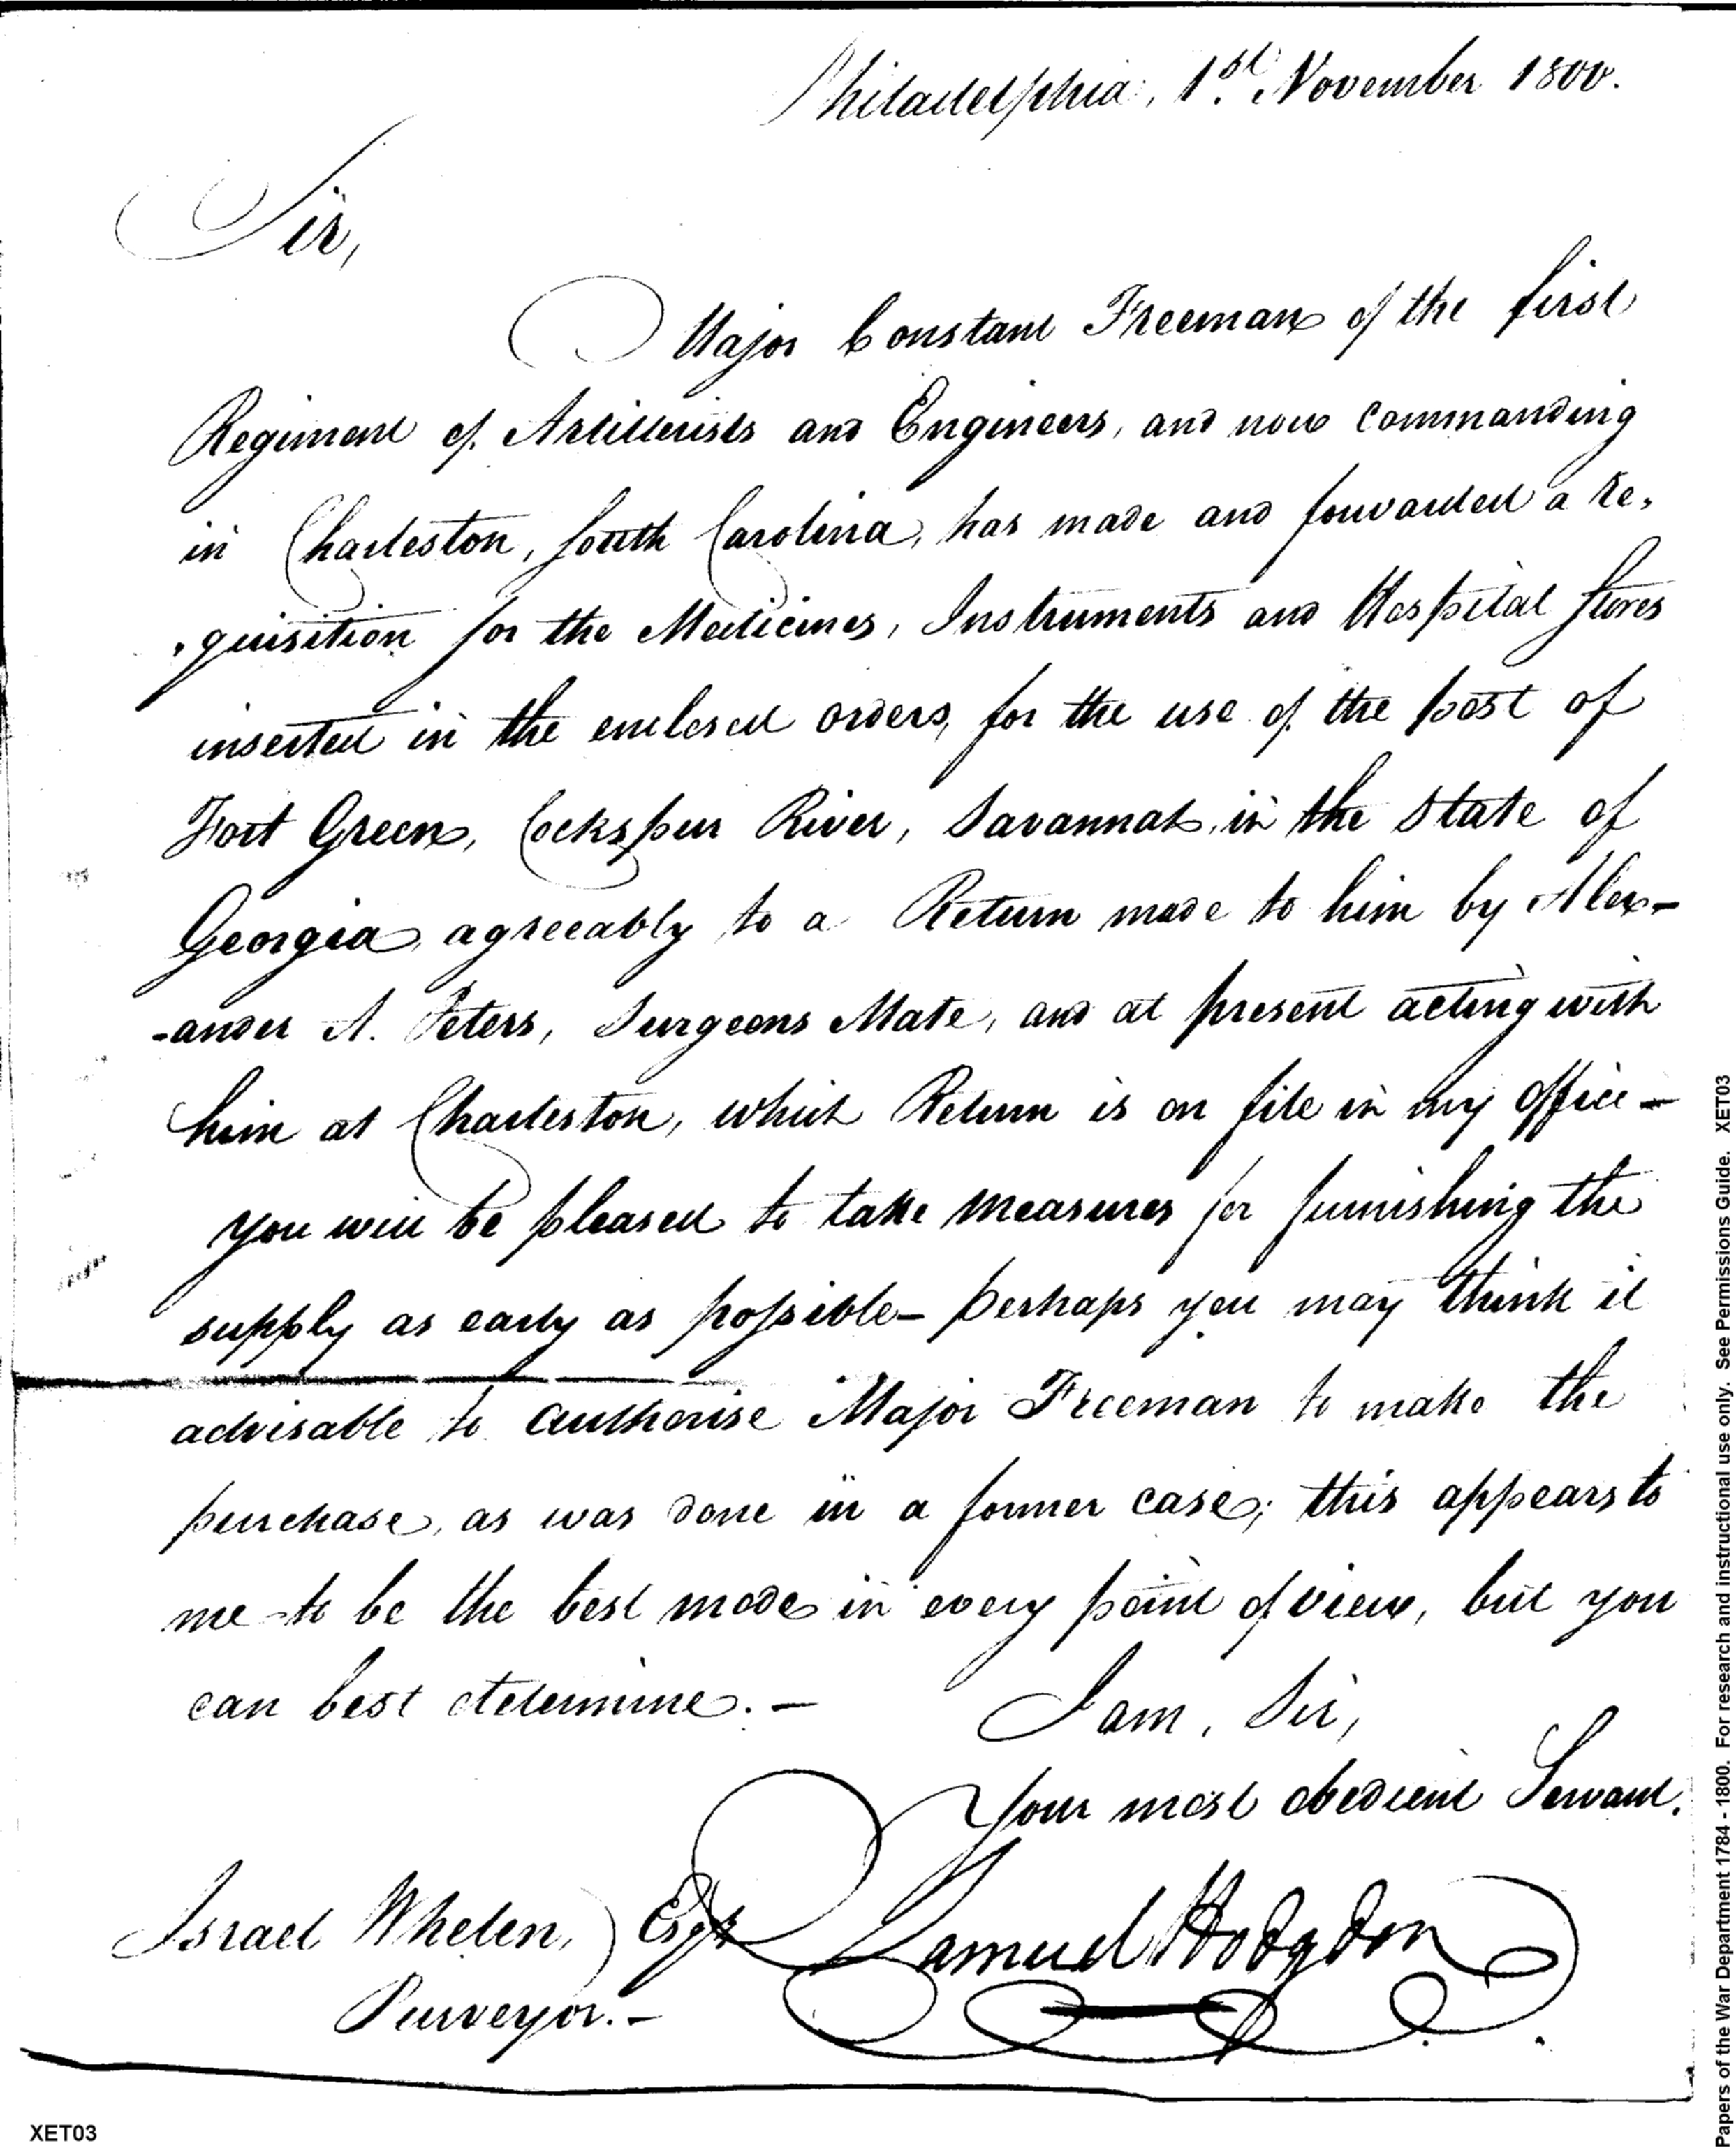 Philadelphia, 1st. November 1800.
Sir,
Major Constant Freeman of the first
Regiment of Artillerists and Engineers, and now commanding
in Charleston, South Carolina, has made and forwarded a Re,
,quisition for the Medicines, Instruments and Hospital Stores
inserted in the enclosed orders, for the use of the post of
Fort Green, Cockspur River, Savannah, in the State of
Georgia, agreeably to a Return made to him by Alex-
-ander A. Peters, Surgeons Mate, and at present acting with
him at Charleston, which Return is on file in my office-
you will be pleased to take measures for furnishing the
supply as early as possible- perhaps you may think it
advisable to authorise Major Freeman to make the
purchase, as was done in a former case; this appears to
me to be the best mode in every point of view, but you
can best determine.-
I am, Sir,
Your most obedient Servant.
Samuel Hodgdon
Israel Whelen, Esqr
Purveyor.-
XET03
Papers of the War Department 1784 - 1800. For research and instructional use only. See Permissions Guide. XET03